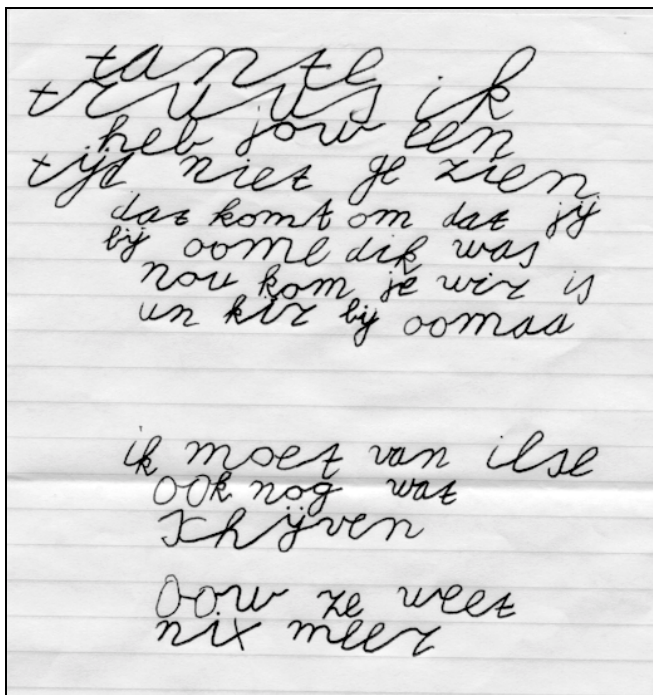 tante
truus ik
heb jouw een
tijd niet ge zien.
dat komt om dat jij
bij oome dik was
nou kom je wir is
un kir bij oomaa
ik moet van ilse
ook nog wat
schijven
Oow ze weet
nix meer